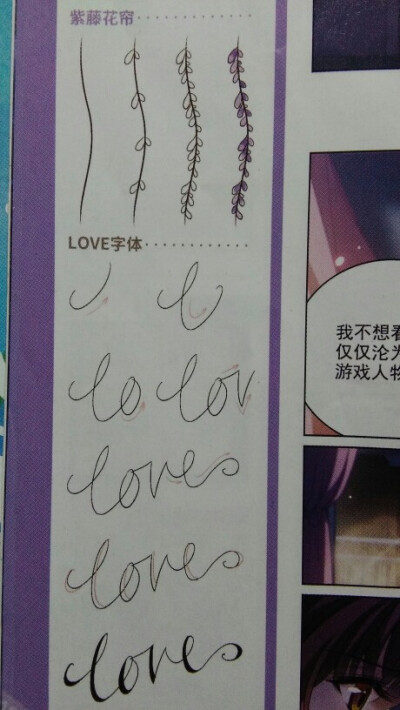 紫藤花帘
LOVE字体
lo lov
loves
loves
loves
我不想看
仅仅沦为
游戏人物